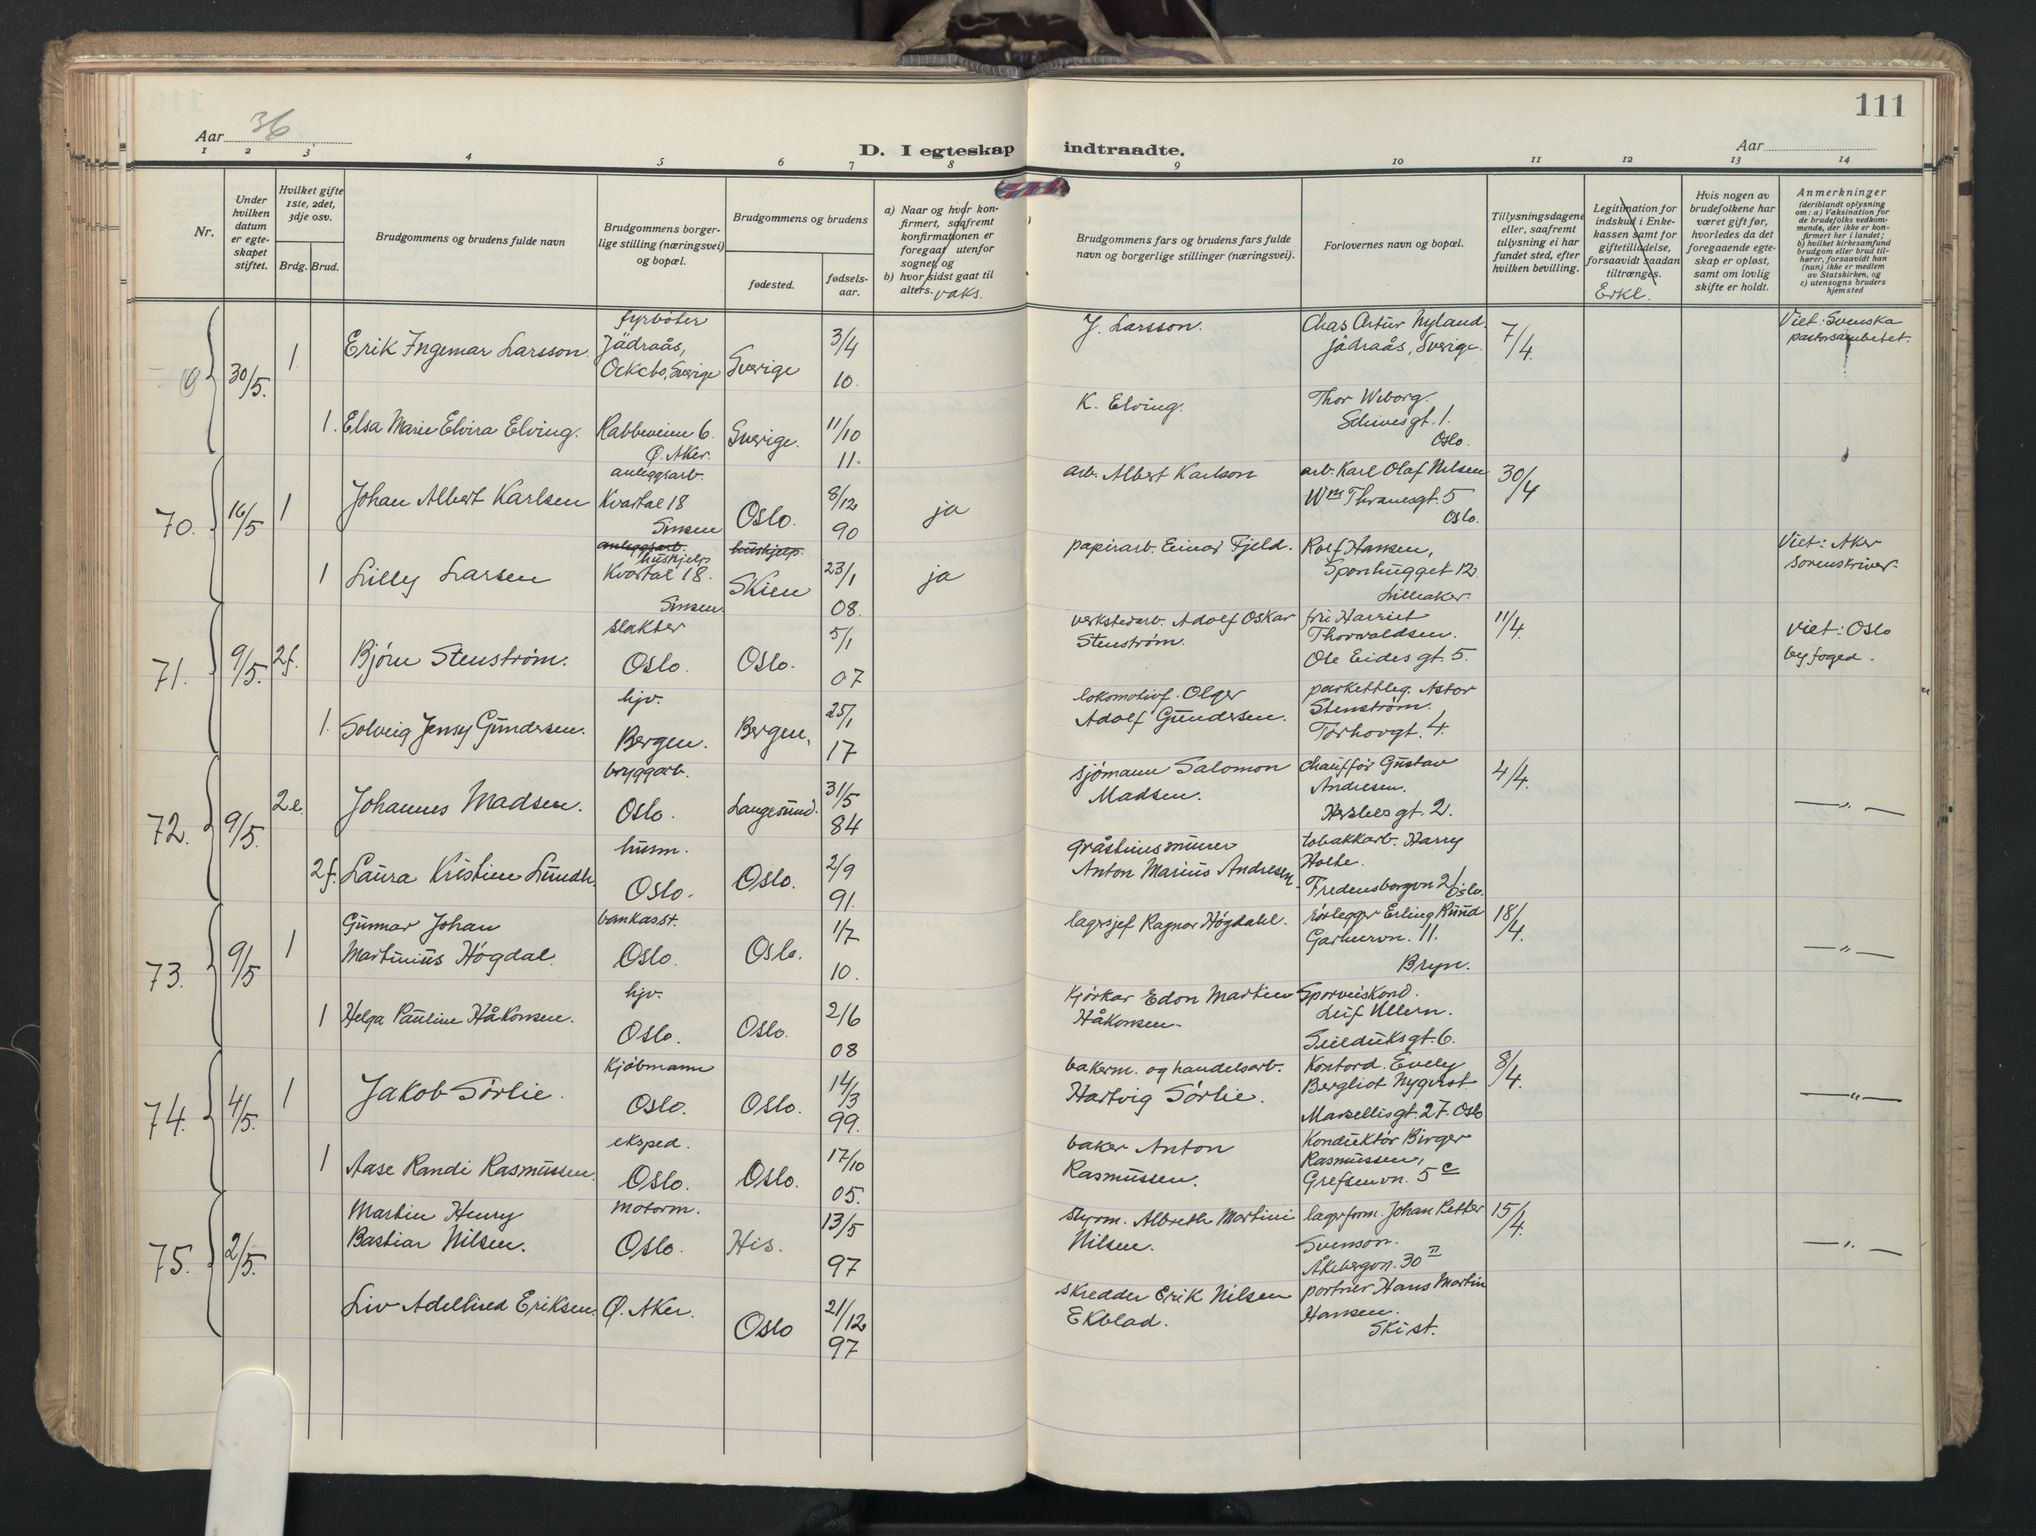 111
Aar 36
D. I egteskap indtraadte.
Aar
1 2 3 4 5 6 7 8 9 10 11 12 13 14
Nr.
Under hvilken datum er egteskapet stiftet.
Hvilket gifte 1ste, 2det, 3dje osv.
Brdg. Brud.
Brudgommens og brudens fulde navn
Brudgommens borgerlige stilling (næringsvei) og bopæl.
Brudgommens og brudens
fødested.
fødselsaar.
a) Naar og hvor konfirmert, saafremt konfirmationen er foregaat utenfor sognet, og
b) hvor sidst gaat til alters. vaks.
Brudgommens fars og brudens fars fulde navn og borgerlige stillinger (næringsvei).
Forlovernes navn og bopæl.
Tillysningsdagene eller, saafremt tillysning ei har fundet sted, efter hvilken bevilling.
Legitimation for indskud i Enkekassen samt for giftetilladelse, forsaavidt saadan tiltrænges. Erkl.
Hvis nogen av brudefolkene har været gift før, hvorledes da det foregaaende egteskap er opløst, samt om lovlig skifte er holdt.
Anmerkninger
(deriblandt oplysning om: a) Vaksination for de brudefolks vedkommende, der ikke er konfirmert her i landet; b) hvilket kirkesamfund brudgom eller brud tilhører, forsaavidt han (hun) ikke er medlem av Statskirken, og c) utensogns bruders hjemsted
30/5. 1 Erik Ingemar Larsson. fyrbøter Jädraås, Ockelbo, Sverige Sverige 3/4 10. J. Larsson. Chas Artur Nyland. Jädraås, Sverige. 7/4. Viet: Svenska pastorsembetet.
1. Elsa Marie Elvira Elving. Rabbeveien 6. Ø. Aker. Sverige. 11/10 11. K. Elving. Thor Wiborg. Schivesgt. 1. Oslo.
70. 16/5 1 Johan Albert Karlsen anleggsarb. Kvartal 18 Sinsen Oslo. 8/12 90 ja arb. Albert Karlson arb. Karl Olaf Nilsen Wm Thranesgt. 5 Oslo. 30/4
1 Lilly Larsen anleggsarb. hushjelp Kvartal 18. Sinsen. hushjelp. Skien 23/1 08. ja papirarb. Einar Fjeld. Rolf Hansen, Sponhugget 12. Lilleaker. Viet: Aker sorenskriver.
71. 9/5. 2f. Bjørn Stenstrøm. slakter Oslo. Oslo. 5/1 07 verkstedarb. Adolf Oskar Stenstrøm. frk Harriet Thorvaldsen. Ole Eidesgt. 5. 11/4. Viet: Oslo byfoged.
1. Solveig Jensy Gundersen. hjv. Bergen. Bergen. 25/1 17 lokomotivf. Olger Adolf Gundersen. parkettleg. Astor Stenstrøm. Torhovgt. 4.
72. 9/5. 2e. Johannes Madsen. bryggarb. Oslo. Langesund. 31/5 84 sjømann Salomon Madsen. chauffør Gustav Andresen. Herslebsgt. 2. 4/4. —"—
2f. Laura Kristine Lundh. husm. Oslo. Oslo. 2/9 91. gråstensmurer Anton Marius Andresen. tobakkarb. Harry Holte. Fredensborgvn 21 Oslo.
73. 9/5 1 Gunnar Johan Martinius Høgdal. bankasst. Oslo. Oslo. 1/7 10. lagersjef Ragnar Høgdahl. rørlegger Erling Ruud Garvervn. 11. Bryn. 18/4. —"—
1 Helga Pauline Håkonsen. hjv. Oslo. Oslo. 2/6 08 kjørkar Edon Martin Håkonsen. Sporveiskond. Leif Ullern. Seilduksgt. 6.
74. 4/5. 1 Jakob Sørlie. kjøbmann Oslo. Oslo. 14/3 99. bakerm. og handelsarb. Hartvig Sørlie. Kontord. Evely Bergliot Nyqvist. Markellisgt. 27. Oslo 8/4. —"—
1 Aase Randi Rasmussen eksped. Oslo. Oslo. 17/10 05. baker Anton Rasmussen. Konduktør Birger Rasmussen, Grefsenvn. 5 c
75. 2/5. Martin Henry Bastian Nilsen. motorm. Oslo. His. 13/5 97 styrm. Albreth Martini Nilsen. lagerform. Johan Petter Svenson. Åkebergvn. 30 II 15/4. —"—
Liv Adelheid Eriksen. Ø. Aker. Oslo 21/12 97 skredder Erik Nilsen Ekblad. portner Hans Martin Hansen. Ski st.